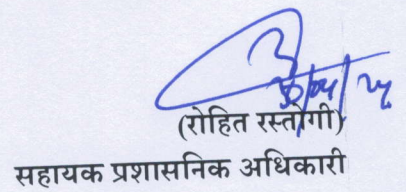 (रोहित रस्तोगी)
सहायक प्रशासनिक अधिकारी